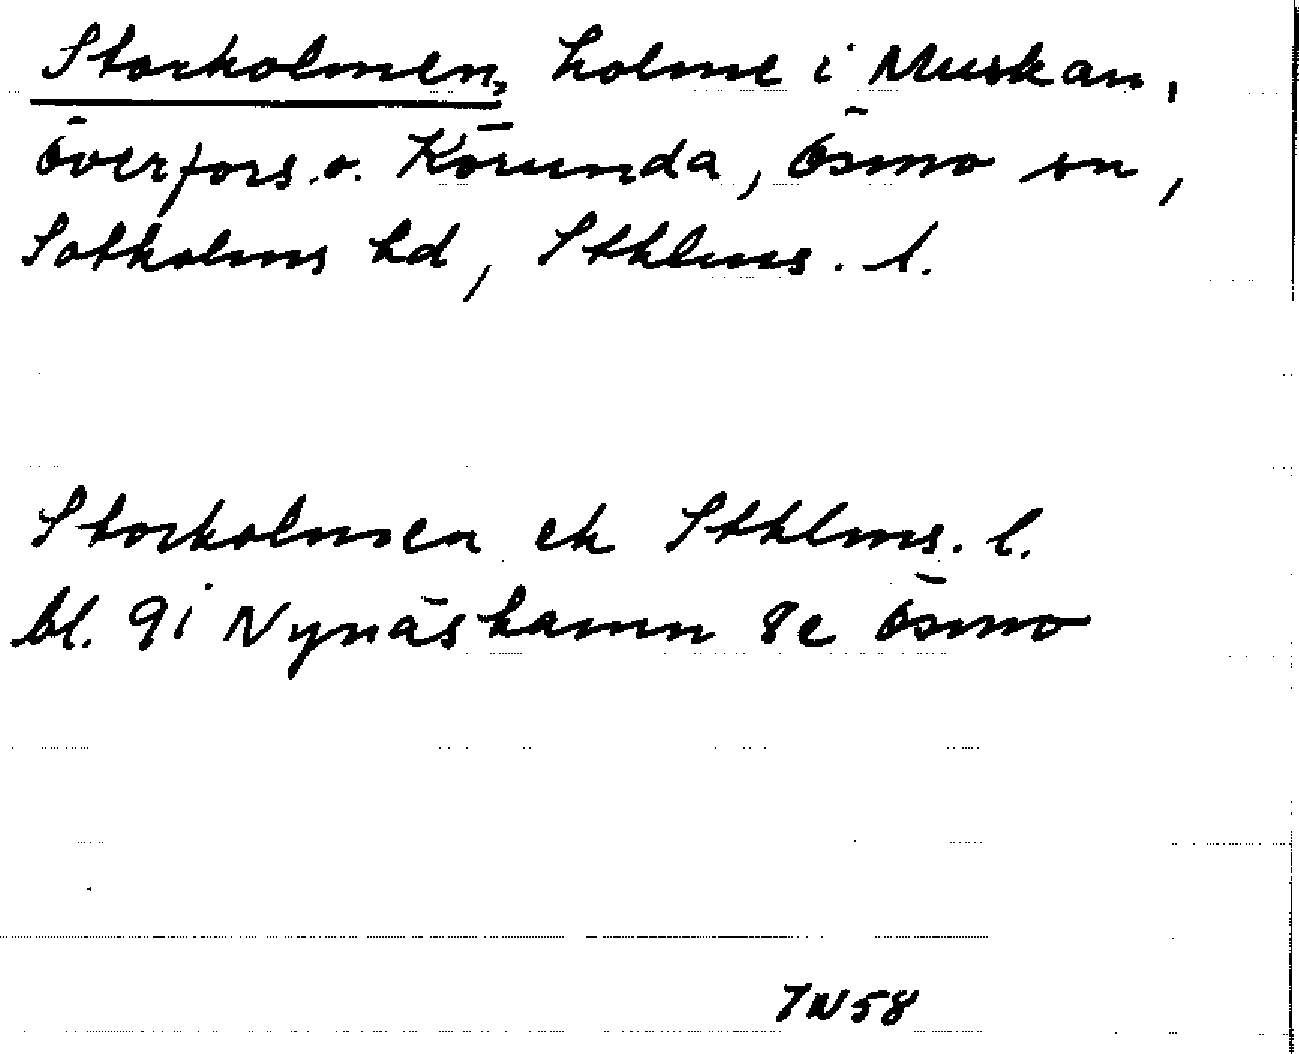 Storholmen, holme i Muskan,
överfors.o. Körunda, Ösmo sn,
Sotholms hd, Sthlms. l.
Storholmen ek Sthlms. l.
bl. 9i Nynäshamn 8e Ösmo
TN58